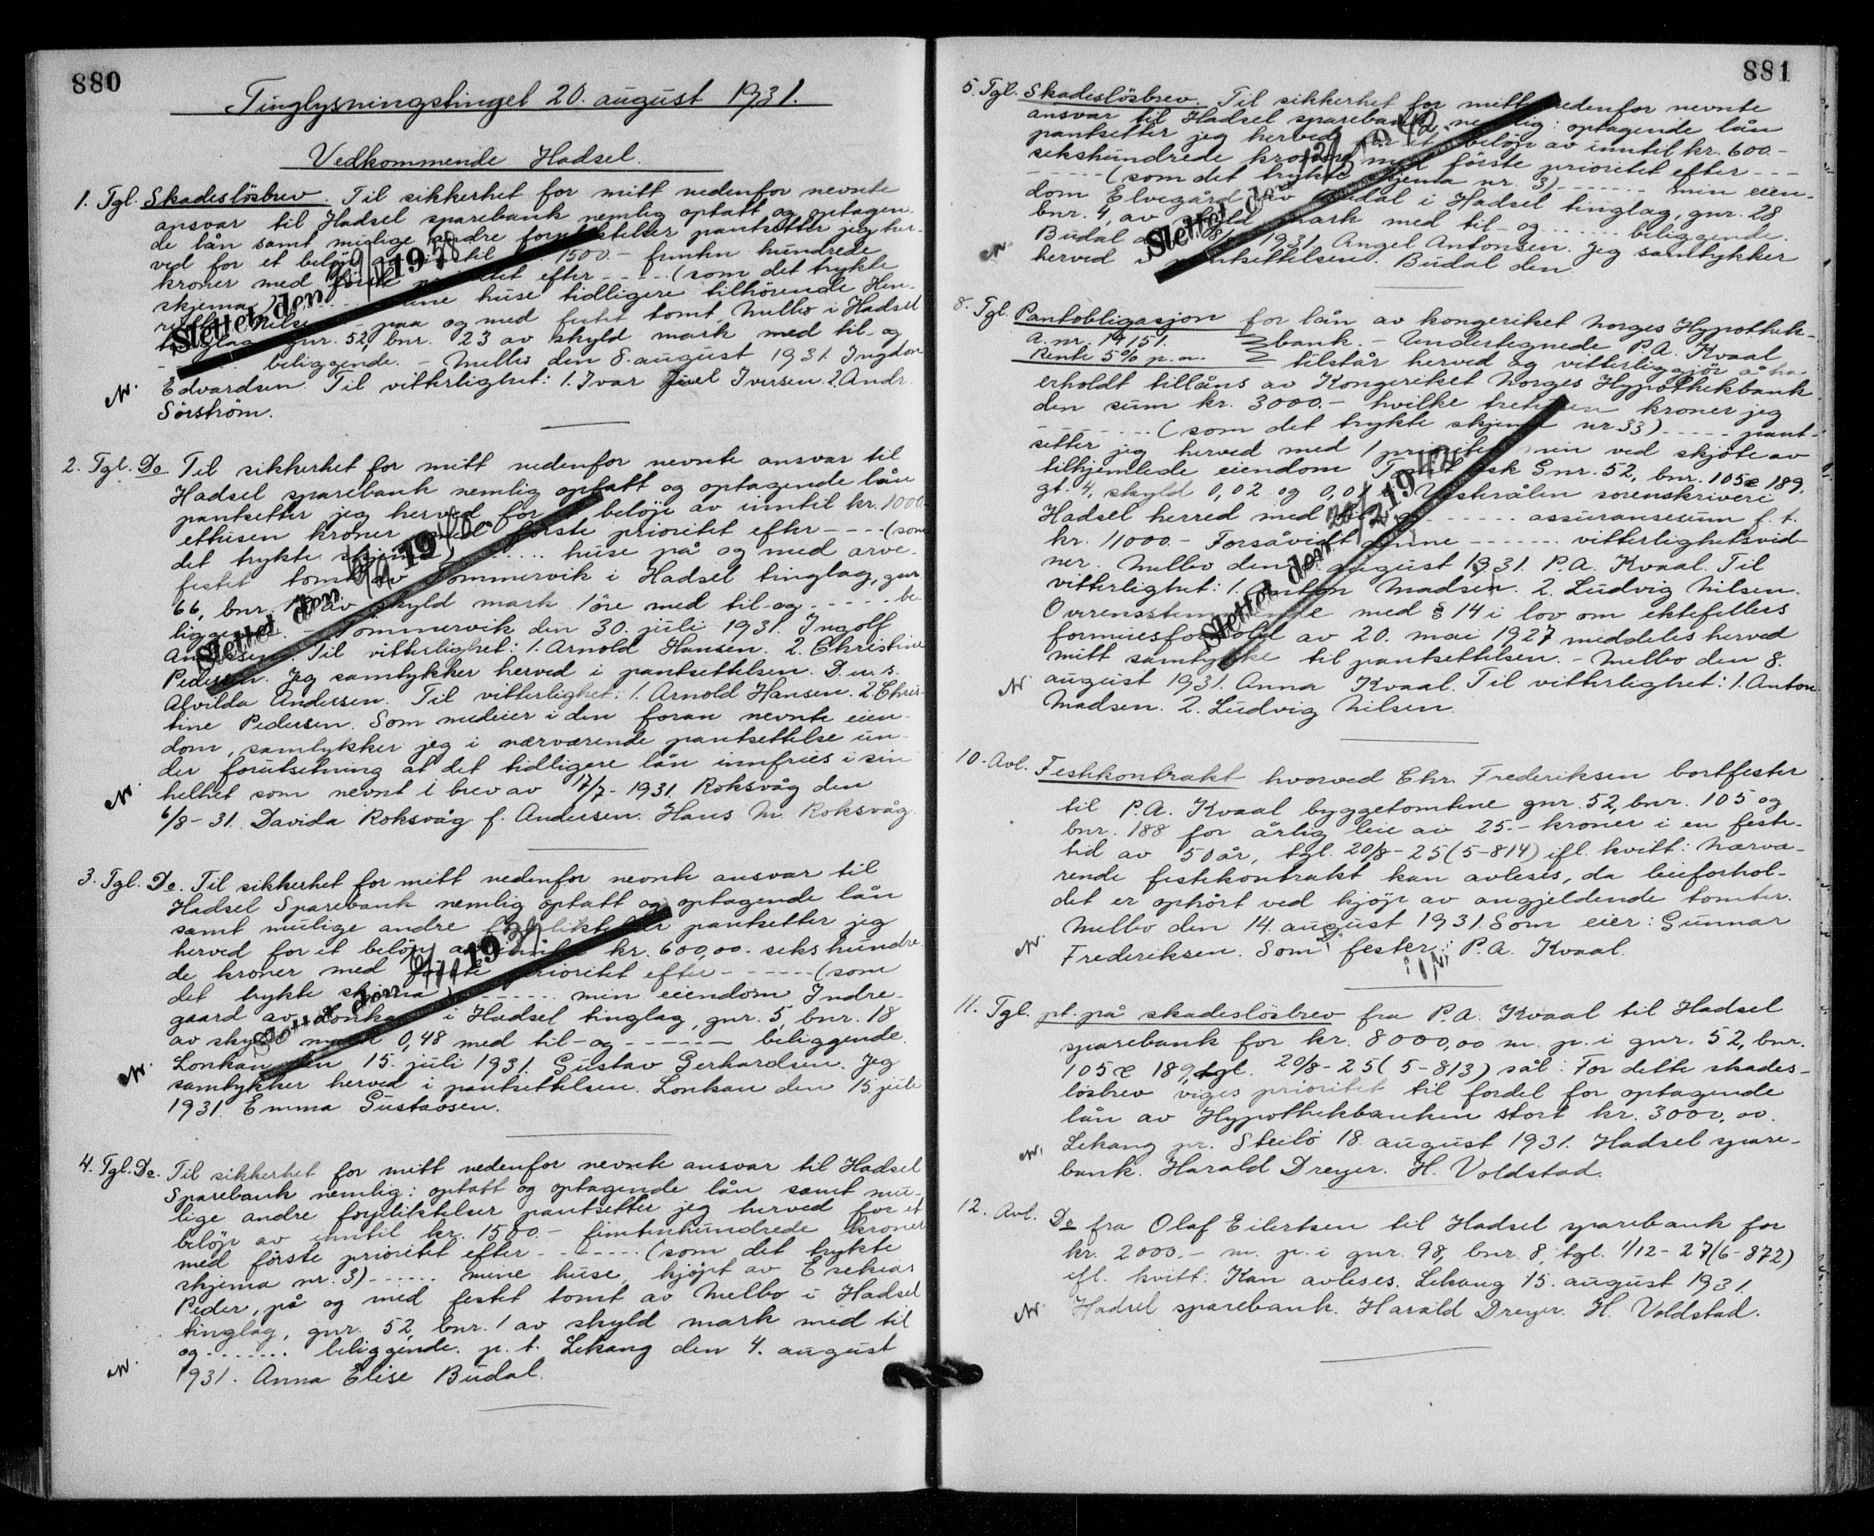 880
Tinglysningstinget 20. august 1931.
Vedkommende Hadsel.
1. Tgl. Skadeslösbrev. Til sikkerhet for mitt nedenfor nevnte
ansvar til Hadsel sparebank nemlig optatt og optagen
de lån samt mulige andre forpliktelser pantsetter jeg her-
ved for et beløp til 1500.- femten hundrede
kroner med første prioritet efter - - - - (som det trykte
skjema mine huse tidligere tilhörende Hen-
paa og med festet tomt Melbo i Hadsel
tinglag gnr. 52, bnr. 23 av skyld mark med til og
- - - - beliggende. - Melbo den 8. august 1931. Ingdor
Edvardsen. Til vitterlighet: 1. Ivar Juel Iversen. 2. Andr.
Sörström.
Slettet den 1938
2. Tgl. Do. Til sikkerhet for mitt nedenfor nevnte ansvar til
Hadsel sparebank nemlig optatt og optagende lån
pantsetter jeg herved for et beløp av inntil kr. 1000.-
ettusen kroner med förste prioritet efter - - - - (som
det trykte skjema - - - - huse på og med arve-
festet tomt av Sommervik i Hadsel tinglag, gnr.
66, bnr. 1 av skyld mark 1 öre med til-og - - - - - be-
liggende. - Sömmervik den 30. juli 1931. Ingolf
Andersen. Til vitterlighet: 1. Arnold Hansen. 2. Christine
Pedersen. Jeg samtykker herved i pantsettelsen. D.u.s.
Alvilda Andersen. Til vitterlighet: 1. Arnold Hansen. 2. Chris-
tine Pedersen. Som medeier i den foran nevnte eien-
dom, samtykker jeg i nærværende pantsettelse un-
der forutsetning at det tidligere lån innfries i sin
helhet som nevnt i brev av 17/7 - 1931. Roksvåg den
6/8-31. Davida Roksvåg f. Andersen. Hans M. Roksvåg.
Slettet den 19
3. Tgl. Do. Til sikkerhet for mitt nedenfor nevnte ansvar til
Hadsel Sparebank nemlig optatt og optagende lån
samt mulige andre forpliktelser pantsetter jeg
herved for et beløp av inntil kr. 600,00.- sekshundre-
de kroner med första prioritet efter - - - - - - (som
det trykte skjema) - - - - - min eiendom Indre-
gaard av Lonkan i Hadsel tinglag, gnr. 5, bnr. 18
av skyld mark 0,48 med til-og - - - - - - beliggende.
Lonkan den 15. juli 1931. Gustav Gerhardsen. Jeg
samtykker herved i pantsettelsen. Lonkan den 15 juli
1931. Emma Gustavsen.
Slettet den 19
4. Tgl. Do. Til sikkerhet for mitt nedenfor nevnte ansvar til Hadsel
Sparebank nemlig: optatt og optagende lån samt mu-
lige andre forpliktelser pantsetter jeg herved for et
beløp av inntil kr. 1500.- femtenhundrede kroner
med förste prioritet efter - - - - - - (som det trykte
skjema nr. 3) - - - - - - mine huse, kjöpt av Esekiar
Peder, på og med festet tomt av Melbo i Hadsel
tinglag, gnr. 52, bnr. 1 av skyld mark med til
og - - - - - - - beliggende. p. t. Lekang den 4. august
1931. Anna Elise Budal.
881
5. Tgl. Skadeslösbrev. Til sikkerhet for mitt nedenfor nevnte
ansvar til Hadsel sparebank nemlig: optagende lån
pantsetter jeg herved for et beløp av inntil kr. 600.-
sekshundrede kroner med förste prioritet efter - - -
- - - - - (som det trykte skjema nr. 3) - - - - - - min eien-
dom Elvegård av Budal i Hadsel tinglag, gnr. 28
bnr. 4, av skyld mark med til-og - - - - - beliggende.
Budal 1931. Angel Antonsen. Jeg samtykker
herved i pantsettelsen. Budal den
Slettet den
8. Tgl. Pantobligasjon for lån av kongeriket Norges Hypothek-
A. nr. 19151. bank. - Undertegnede P. A. Kvaal
Rente 5% p. a. tilstår herved og vitterliggjör å ha
erholdt tillåns av Kongeriket Norges Hypothekbank
den sum kr. 3000.- hvilke tretusen kroner jeg
- - - - - - - (som det trykte skjema nr. 33) - - - - - pant-
setter jeg herved med 1 prioritet min ved skjöte av
tilhjemlede eiendom Gnr. 52, bnr. 105 & 189.
gt. 4, skyld 0,02 og 0,01 i Vesterålen sorenskriveri
Hadsel herred med - - - - - - assuransesum f. t.
kr. 11000.- Forsåvidt denne - - - - - - vitterlighetsvid-
ner. Melbo den 8. august 1931. P. A. Kvaal. Til
vitterlighet: 1. Anton Madsen. 2. Ludvig Nilsen.
Overensstemmende med § 14 i lov om ektefellers
formuesforhold av 20. mai 1927 meddeles herved
mitt samtykke til pantsettelsen. - Melbo den 8.
august 1931. Anna Kvaal. Til vitterlighet: 1. Anton
Madsen. 2. Ludvig Nilsen.
Slettet den 19
10. Avl. Festekontrakt hvorved Chr. Frederiksen bortfester
til P. A. Kvaal byggetomtene gnr. 52, bnr. 105 og
bnr. 188 for årlig leie av 25.- kroner i en feste-
tid av 50 år, tgl. 20/8-25 (5-814) ifl. kvitt: Nærvæ-
rende festekontrakt kan avleses, da leieforhol-
det er ophört ved kjöp av angjeldende tomter.
Melbo den 14. august 1931. Som eier: Gunnar
Frederiksen. Som fester: P. A. Kvaal.
11. Tgl. pt. på skadeslösbrev fra P. A. Kvaal til Hadsel
sparebank for kr. 8000,00 m. p. i gnr. 52, bnr.
105 & 189, tgl. 20/8-25 (5-813) sål: For dette skades-
lösbrev viges prioritet til fordel for optagende
lån av Hypothekbanken stort kr. 3000,00.
Lekang pr. Steilö 18. august 1931. Hadsel spare-
bank. Harald Dreyer. H. Voldstad.
12. Avl. Do fra Olaf Eilertsen til Hadsel sparebank for
kr. 2000.- m. p. i gnr. 98, bnr. 8, tgl. 1/12-27 (6-872)
ifl. kvitt: Kan avleses. Lekang 15. august 1931.
Hadsel sparebank. Harald Dreyer. H. Voldstad.